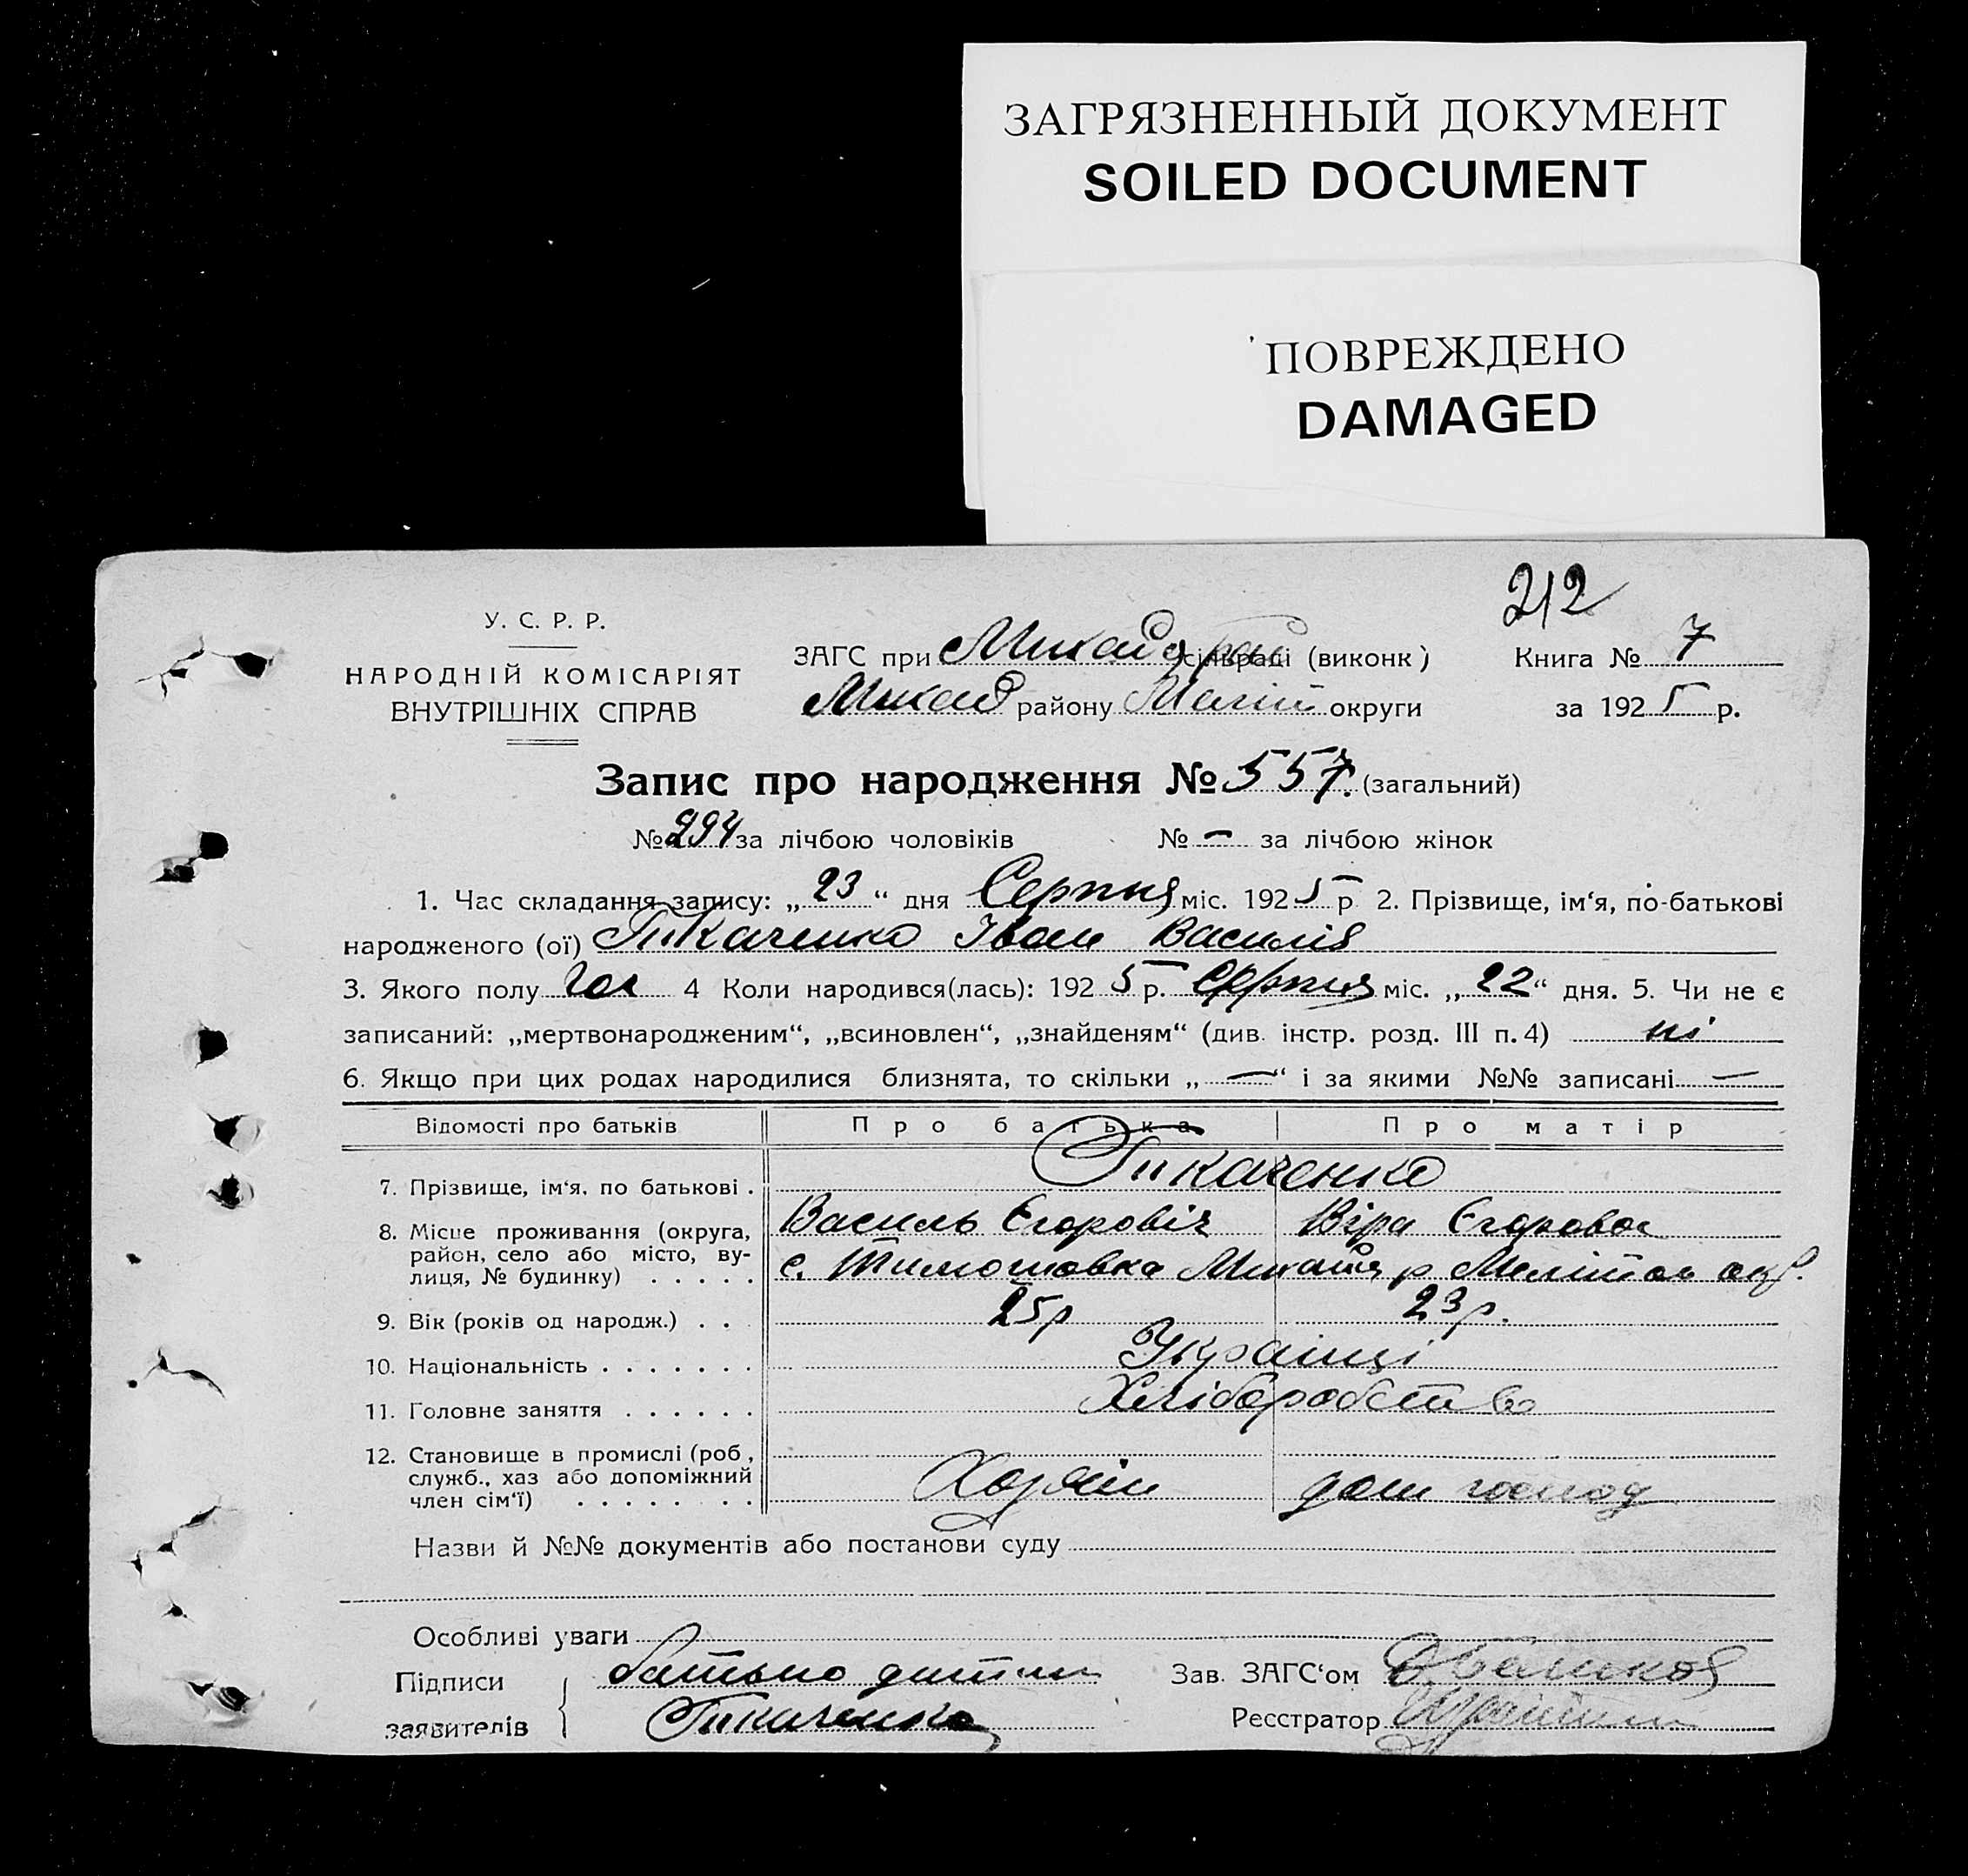 ЗАГРЯЗНЕННЫЙ ДОКУМЕНТ
SOILED DOCUMENT
ПОВРЕЖДЕНО
DAMAGED
212
У. С. Р. Р.
НАРОДНІЙ КОМІСАРІЯТ
ВНУТРІШНІХ СПРАВ
ЗАГС при сільраді (виконк) Книга № 7
району Меліт округи за 1925 р.
Запис про народження № 557. (загальний)
№ 294 за лічбою чоловіків № — за лічбою жінок
1. Час складання запису: „23“ дня Серпня міс. 1925 р 2. Прізвище, ім‘я, по-батькові
народженого (ої) Ткаченко Іван Василів
3. Якого полу чол 4 Коли народився(лась): 1925 р. Серпня міс. „22“ дня. 5. Чи не є
записаний: „мертвонародженим“, „всиновлен“, „знайденям“ (див. інстр. розд. III п. 4) ні
6. Якщо при цих родах народилися близнята, то скільки „—“ і за якими №№ записані —
Відомості про батьків Про батька Про матір
7. Прізвище, ім‘я, по батькові . Ткаченко
Василь Єгоровіч Віра Єгоровна
8. Місце проживання (округа,
район, село або місто, ву-
лиця, № будинку) . . . . . с. Тимошовка р Меліտоп окр.
9. Вік (років од народж.) . . . 25р 23р.
10. Національність . . . . . . . Українці
11. Головне заняття . . . . . . Хліборобство
12. Становище в промислі (роб.,
служб., хаз або допоміжний
член сім‘ї) . . . . . . . Хозяїн дом господ
Назви й №№ документів або постанови суду
Особливі уваги
Підписи
заявителів
батько дитини
Ткаченко
Зав. ЗАГС‘ом
Реєстратор